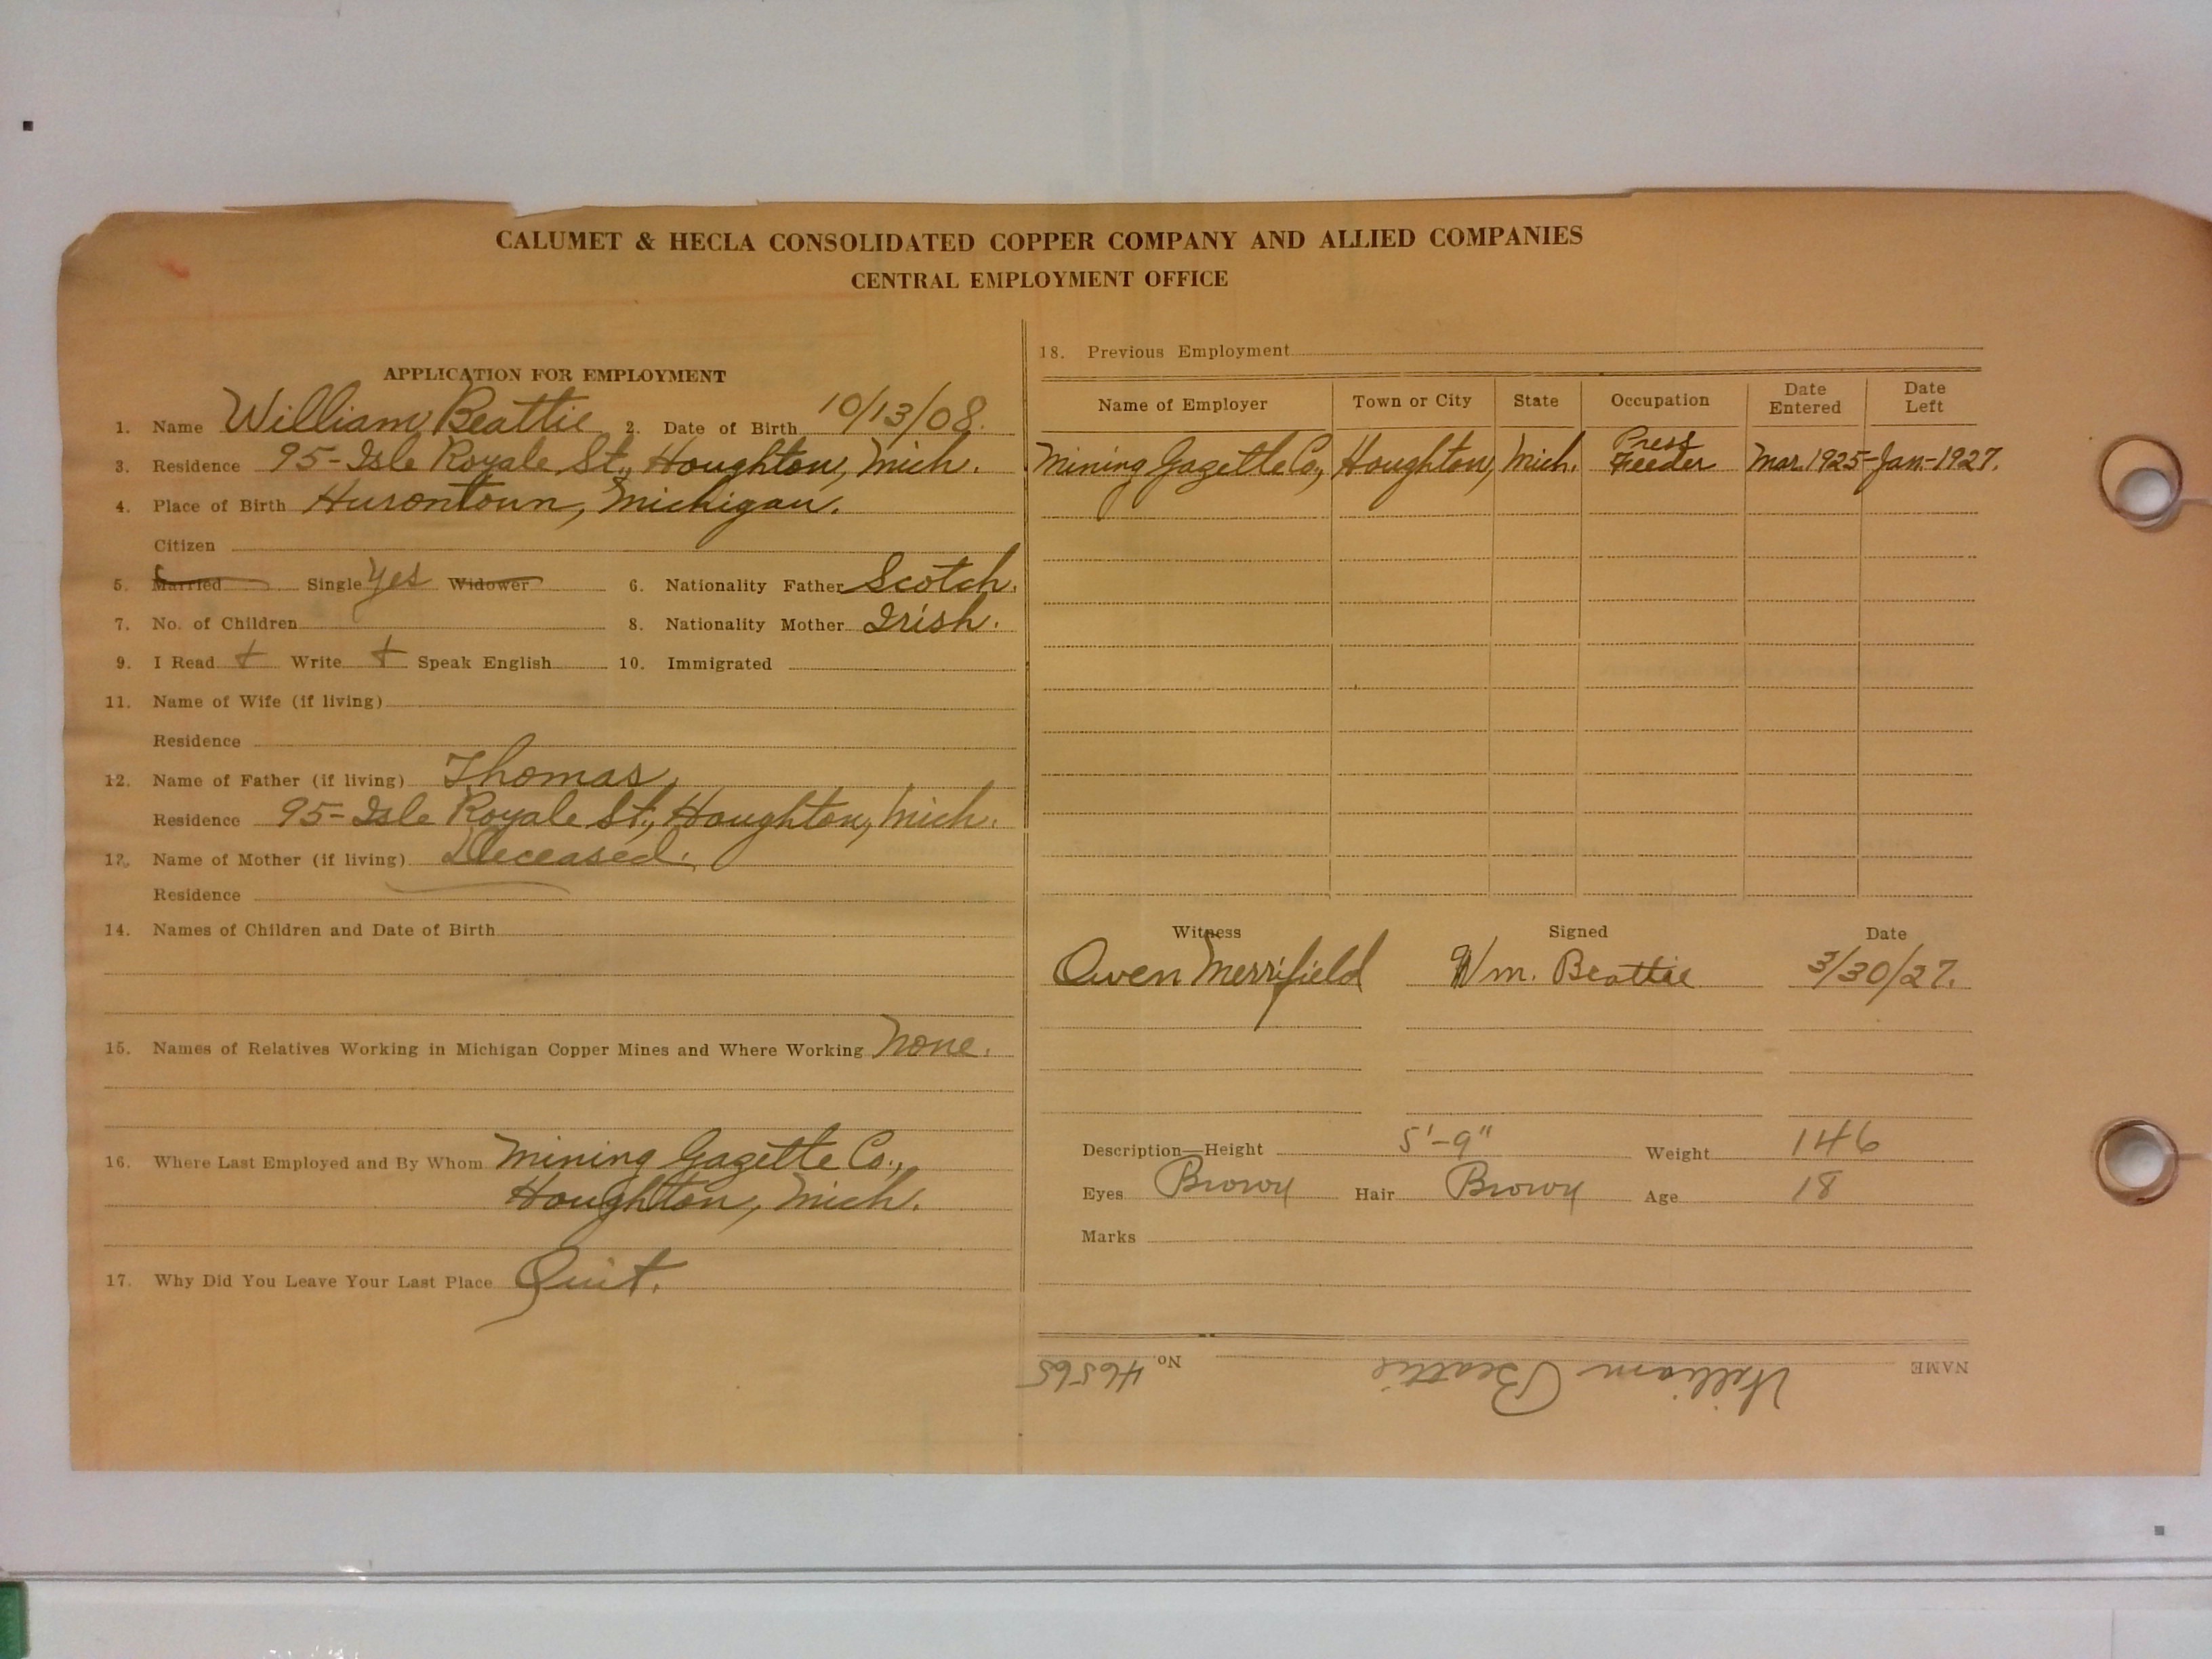 CALUMET & HECLA CONSOLIDATED COPPER COMPANY AND ALLIED COMPANIES
CENTRAL EMPLOYMENT OFFICE
APPLICATION FOR EMPLOYMENT
1. Name William Beattie 2. Date of Birth 10/13/08.
3. Residence 95-Isle Royale St., Houghton, Mich.
4. Place of Birth Hurontown, Michigan.
Citizen
5. Married Single Yes Widower 6. Nationality Father Scotch.
7. No. of Children 8. Nationality Mother Irish.
9. I Read + Write + Speak English 10. Immigrated
11. Name of Wife (if living)
Residence
12. Name of Father (if living) Thomas,
Residence 95-Isle Royale St., Houghton, Mich.
13. Name of Mother (if living) Deceased.
Residence
14. Names of Children and Date of Birth
15. Names of Relatives Working in Michigan Copper Mines and Where Working None.
16. Where Last Employed and By Whom Mining Gazette Co.,
Houghton, Mich.
17. Why Did You Leave Your Last Place Quit.
18. Previous Employment
Name of Employer Town or City State Occupation Date Entered Date Left
Mining Gazette Co., Houghton, Mich. Press Feeder Mar. 1925-Jan-1927.
Witness Signed Date
Owen Merrifield Wm. Beattie 3/30/27.
Description—Height 5'-9" Weight 146
Eyes Brown Hair Brown Age 18
Marks
NAME William Beattie No. 46565